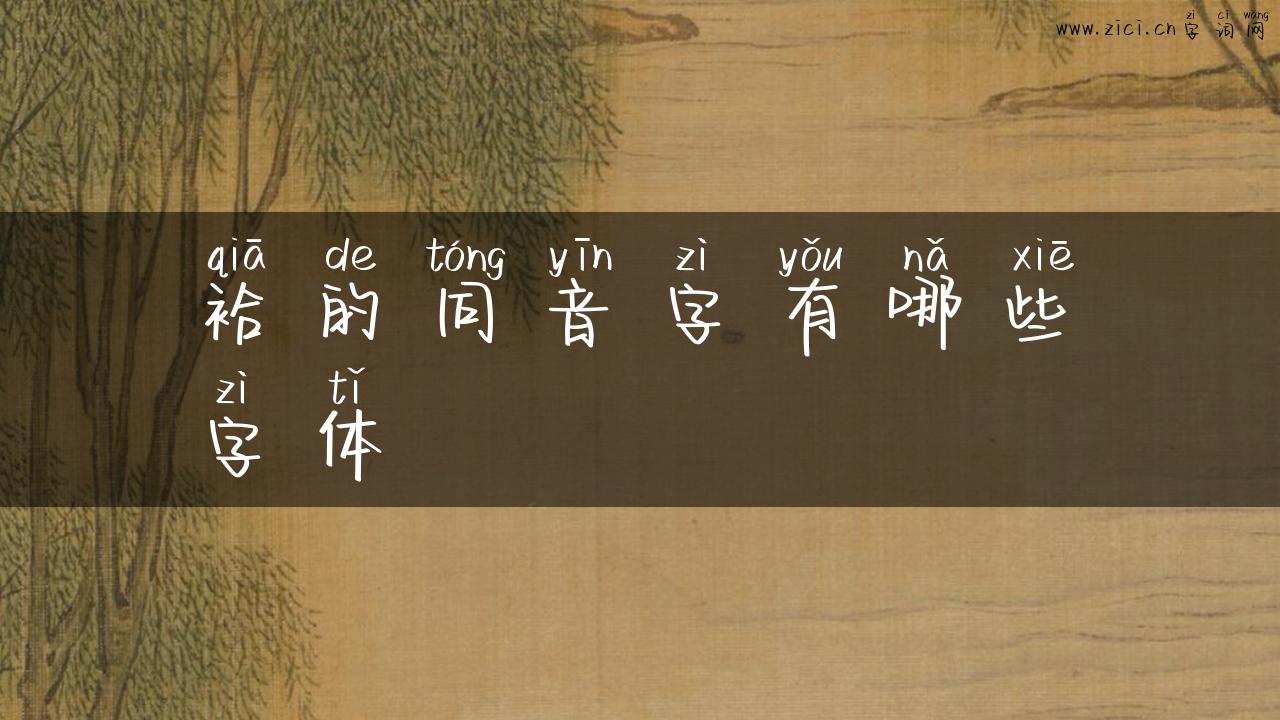 zì cí wǎng
www.zici.cn 字词网
qiā de tóng yīn zì yǒu nǎ xiē
袷的同音字有哪些
zì tǐ
字体